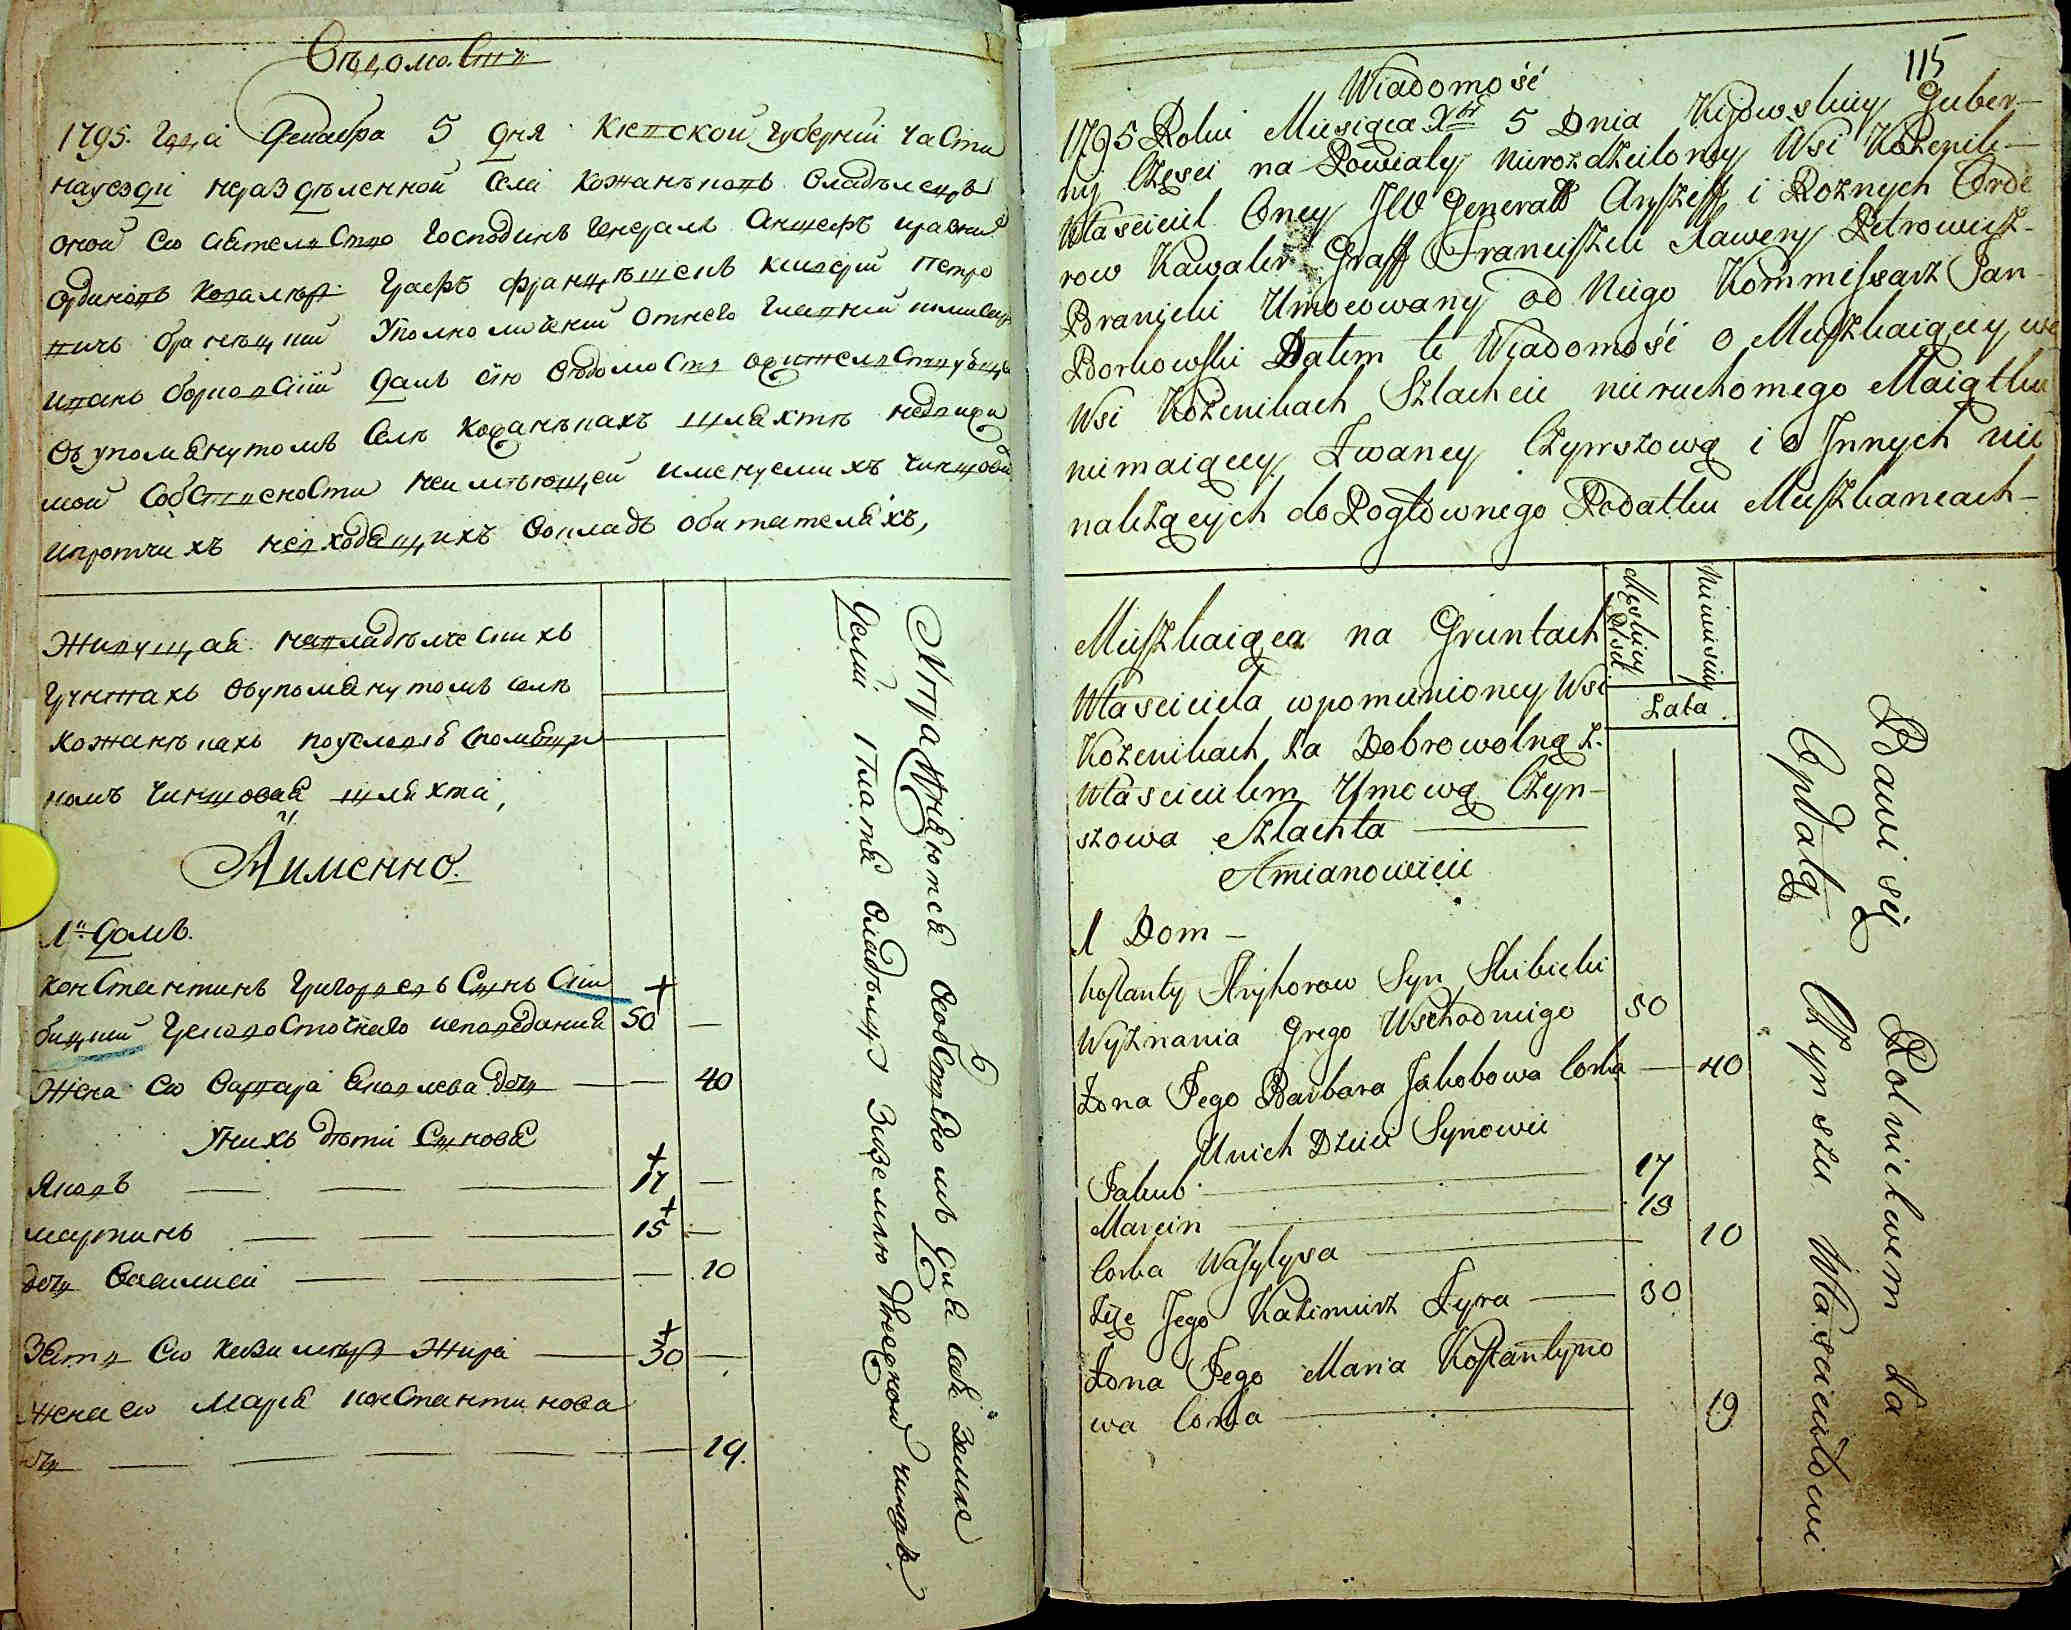 Вѣдомость
1795. Года Декабря 5 дня Киевской Губерніи части
науезди неразделенной села Кожанъковъ владѣлецъ
оной его сіятельство Господинъ Генералъ Аншефъ
ординовъ ковалеръ Графъ Францѣшекъ Ксаверій Петро
вичъ Бранецкий Уполномоченій отнего Главній
Иванъ Борковскій далъ сію вѣдомость ожительствующей
въупомянутомъ селѣ Кожанъкахъ шляхтѣ недвижи
мой собствености неимѣющей именуемихъ чиншовой
ипротчихъ невходящихъ вокладъ обитателяхъ,
Живущая навладѣлческихъ
Грунтахъ въупомянутомъ селѣ
Кожанъкахъ поусловiѣ спомѣщи
комъ Чиншовая шляхта,
Аименно.
1й Домъ.
Константинъ Григорьевъ Сынъ Ски
бицкий Грековосточнаго исповеданія 50 —
Жена его Варвара Яковлева дочь — — 40
Унихъ дѣти Сыновя
Яковъ — — — 17 —
мартинъ — — — 15 —
дочь Василиса — — — 10
Зять его Казимѣръ Жира — 30 —
Жена его Марія Константинова
дочь — — — — 19.
Упражняются особственомъ дѣле земле
делий І платя владѣлцу Заземлю денежной чиншъ
115
Wiadomość
1795 Roku Miesiąca Xbr 5 Dnia Kijowskiey Guber-
nij Części na Powiaty nierozdzeiloney Wsi Kożenik-
Właściciel Oney JW Generałł Anszeff i Rożnych Orde
row Kawaler Graff Franciszek Xawery Petrowicz-
Branicki Umocowany od Niego Kommissarz Jan-
Borkowski Dałem te Wiadomość o Mieszkaiącey we
Wsi Kożenikach Szlachcie nieruchomego Maiątku
niemaiącey Zwaney Czynszową i o Jnnych nie
należących do Pogłownego Podatku Mieszkancach-
Mieszkaiąca na Gruntach
Właściciela wpomnioney Wsi
Kożenikach za Dobrowolną z-
Właścicielem Umową Czyn-
szowa Szlachta —
A mianowicie
Męskiey Płci
Niewieściey
Lata.
1 Dom —
Kostanty Hryhorow Syn Skibicki
Wyznania Grego Wschodniego 50
Żona Jego Barbara Jakobowa Corka — 40
Unich Dzieci Synowie
Jakub — 17
Marcin — 15
Corka Wasylysa — 10
Zięć Jego Kazimierz Żyra — 30
Żona Jego Maria Kostantyno
wa Corka — 19
Bawi się Rolnictwem za
Opłatą Czynszu Właścicielowi